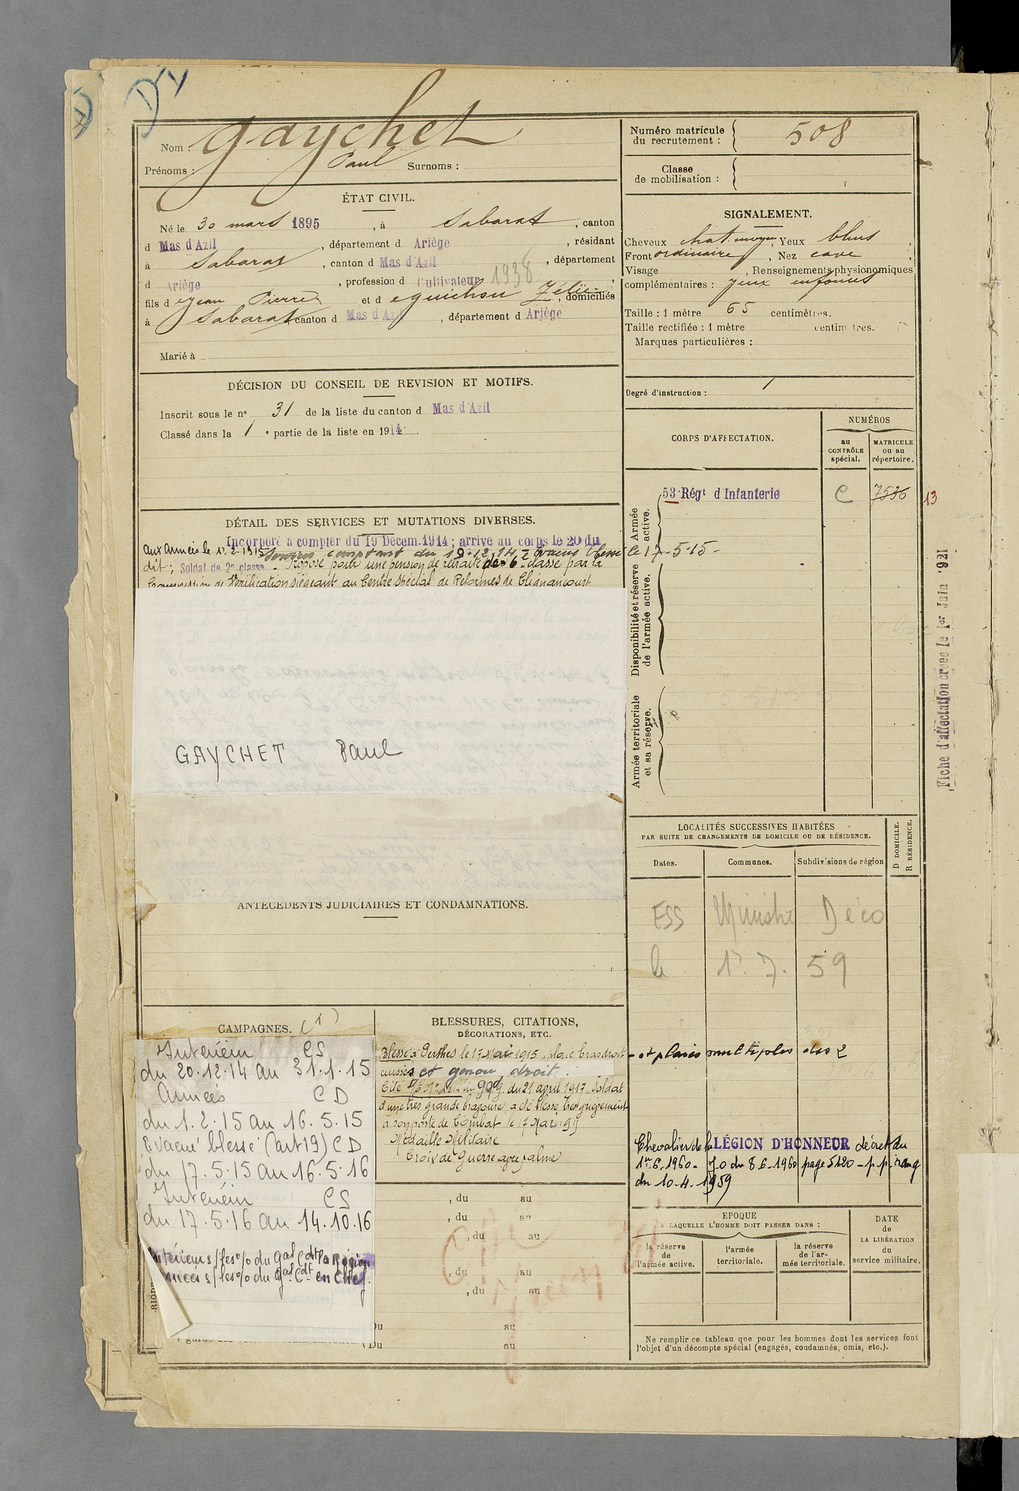 Dy
Nom : Gaychet
Prénoms : Paul Surnoms :
Numéro matricule du recrutement : 508
Classe de mobilisation :
ÉTAT CIVIL.
Né le 30 mars 1895, à Sabarat, canton
d Mas d'Azil, département d Ariège, résidant
à Sabarat, canton d Mas d'Azil, département
d Ariège, profession de Cultivateur 1938
fils d e Jean Pierre et d e Zélie, domiciliés
à Sabarat canton d Mas d'Azil, département d Ariège
Marié à
SIGNALEMENT.
Cheveux chat. moyen, Yeux bleus
Front ordinaire, Nez cave
Visage , Renseignements physionomiques
complémentaires : yeux enfoncés
Taille : 1 mètre 65 centimètres.
Taille rectifiée : 1 mètre centimètres.
Marques particulières :
Degré d'instruction : 1
DÉCISION DU CONSEIL DE REVISION ET MOTIFS.
Inscrit sous le n° 31 de la liste du canton d Mas d'Azil
Classé dans la 1e partie de la liste en 1914
CORPS D'AFFECTATION.
NUMÉROS
au CONTRÔLE spécial.
MATRICULE ou au répertoire.
Armée active.
53e Régt d'Infanterie C 7530 13
Disponibilité et réserve de l'armée active.
Armée territoriale et sa réserve.
Fiche d'affectation créée le 1er Juin 1921
DÉTAIL DES SERVICES ET MUTATIONS DIVERSES.
Incorporé à compter du 19 Décem. 1914 ; arrivé au corps le 20 du
aux Armées le 1.2.1915 Services comptant du 19.12.14. Evacué blessé le 17-5-15-
dit ; Soldat de 2e classe. Proposé pour une pension de retraite de 6e classe par la
Commission de Vérification siégeant au Centre Spécial de Réformes de Clignancourt
GAYCHET Paul
ANTÉCÉDENTS JUDICIAIRES ET CONDAMNATIONS.
LOCALITÉS SUCCESSIVES HABITÉES
PAR SUITE DE CHANGEMENTS DE DOMICILE OU DE RÉSIDENCE.
Dates. Communes. Subdivisions de région
D DOMICILE. R RÉSIDENCE.
ESS Ministre Déco
le 1.7.59
CAMPAGNES. (1)
Intérieur CS
du 20.12.14 au 31.1.15
Armées CD
du 1.2.15 au 16.5.15
Evacué blessé (art 19) CD
du 17.5.15 au 16.5.16
Intérieur CS
du 17.5.16 au 14.10.16
Intérieurs/les%o du Gal Cdt la Région
Armées/les%o du Gal Cdt en Chef.
BLESSURES, CITATIONS,
DÉCORATIONS, ETC.
Blessé à Perthes le 17 Mai 1915, plaie bras droit
cuisses et genou droit. - et plaies multiples des 2
Cité du 21 avril 1917. Soldat
d'une très grande bravoure, a été blessé très grièvement
à son poste de Combat le 17 Mai 1915
Médaille Militaire
Croix de Guerre avec palme
Chevalier de la LÉGION D'HONNEUR décret du
1er.6.1960 - J.O du 8.6.1960 page 5120 - p.p. rang
du 10.4.1959
, du au
, du au
, du au
, du au
, du au
Du au
Du au
EPOQUE
A LAQUELLE L'HOMME DOIT PASSER DANS :
la réserve de l'armée active.
l'armée territoriale.
la réserve de l'armée territoriale.
DATE de LA LIBÉRATION du service militaire.
Ne remplir ce tableau que pour les hommes dont les services font
l'objet d'un décompte spécial (engagés, condamnés, omis, etc.).